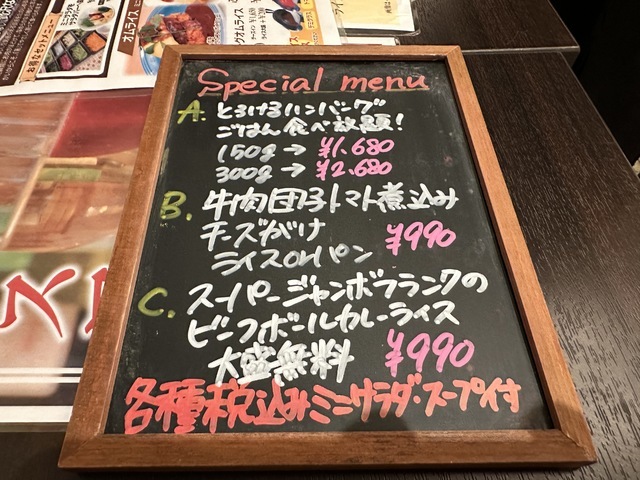 Special menu
A. とろけるハンバーグ
ごはん食べ放題!
150g → ¥1.680
300g → ¥2.680
B. 牛肉団子トマト煮込み
チーズがけ ¥990
ライスorパン
C. スーパージャンボフランクの
ビーフボールカレーライス
大盛無料 ¥990
各種税込みミニサラダ・スープ付す
オムライス
お得なセットメニュー